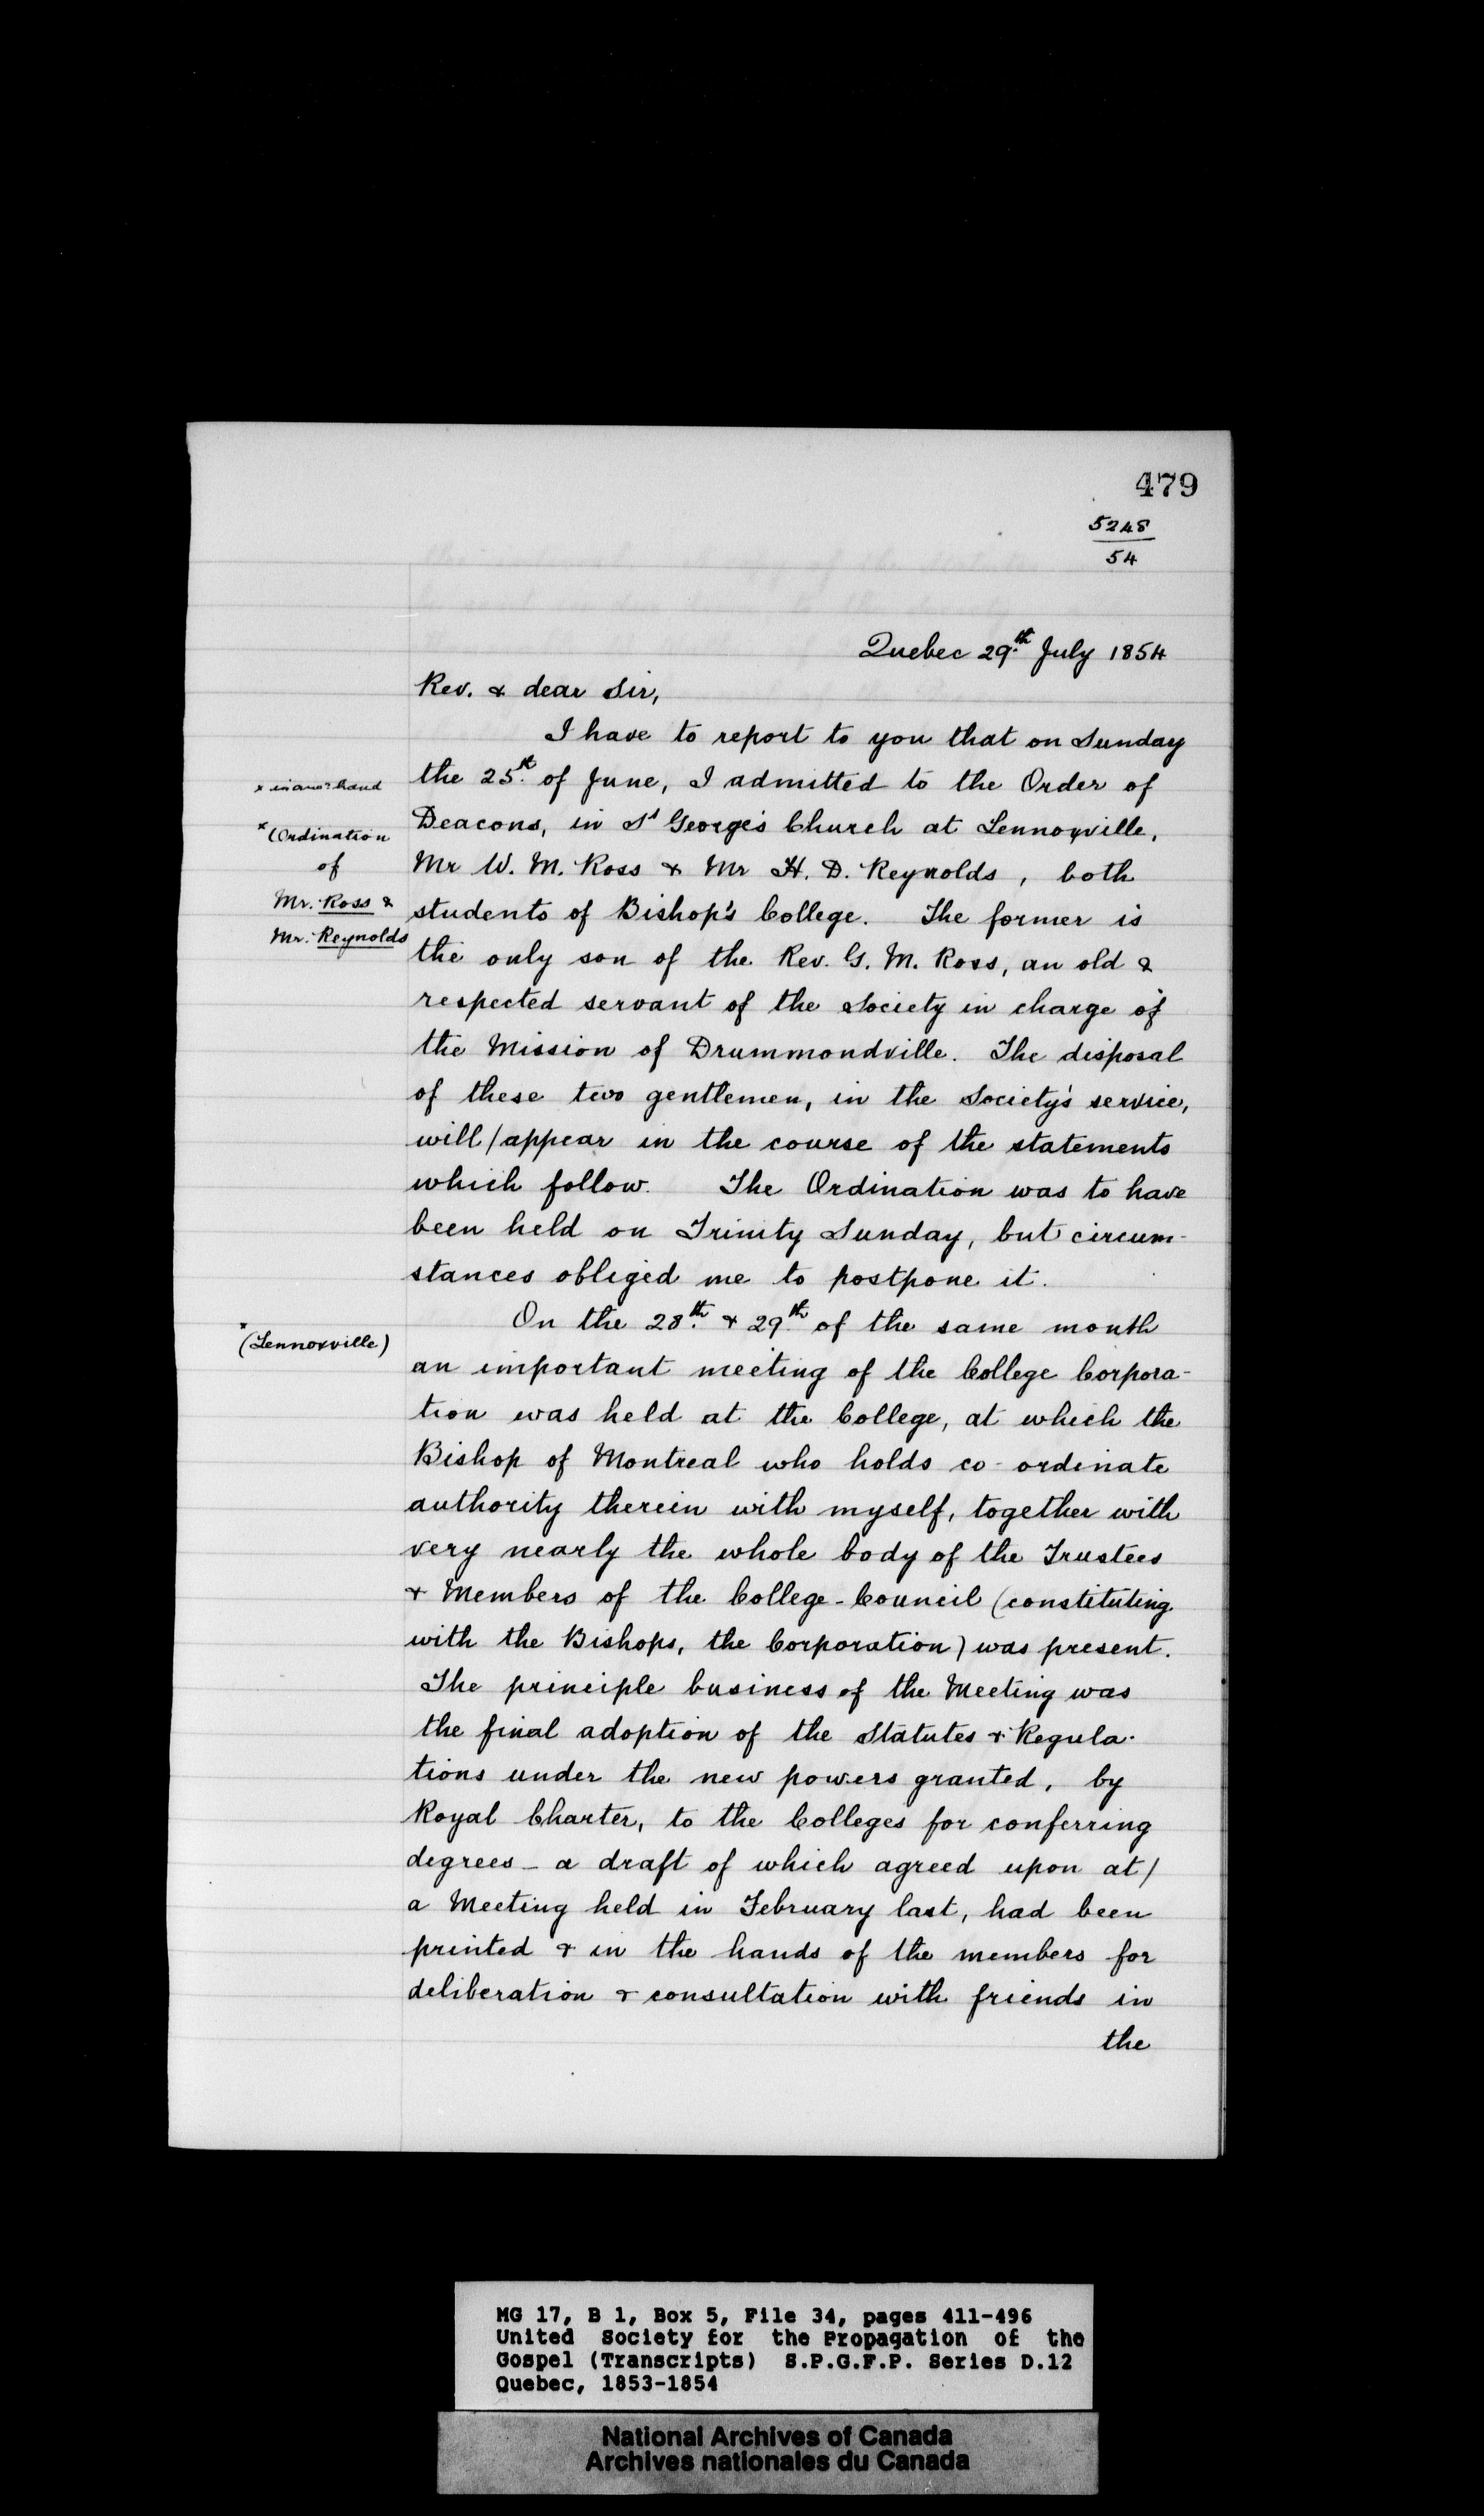 479
5248
54
Quebec 29th July 1854
Rev. & dear Sir,
I have to report to you that on Sunday
the 25th of June, I admitted to the Order of
Deacons, in St George's Church at Lennoxville,
Mr W. M. Ross & Mr H. D. Reynolds, both
students of Bishop's College. The former is
the only son of the Rev. G. M. Ross, an old &
respected servant of the Society in charge of
the Mission of Drummondville. The disposal
of these two gentlemen, in the Society's service,
will/appear in the course of the statements
which follow. The Ordination was to have
been held on Trinity Sunday, but circum-
stances obliged me to postpone it.
x in anor hand
x (Ordination
of
Mr. Ross &
Mr. Reynolds
On the 28th & 29th of the same month
an important meeting of the College Corpora-
tion was held at the College, at which the
Bishop of Montreal who holds co-ordinate
authority therein with myself, together with
very nearly the whole body of the Trustees
& Members of the College-Council (constituting
with the Bishops, the Corporation) was present.
The principle business of the Meeting was
the final adoption of the Statutes & Regula-
tions under the new powers granted, by
Royal Charter, to the Colleges for conferring
degrees - a draft of which agreed upon at/
a Meeting held in February last, had been
printed & in the hands of the members for
deliberation & consultation with friends in
the
x (Lennoxville)
MG 17, B 1, Box 5, File 34, pages 411-496
United Society for the Propagation of the
Gospel (Transcripts) S.P.G.F.P. Series D.12
Quebec, 1853-1854
National Archives of Canada
Archives nationales du Canada